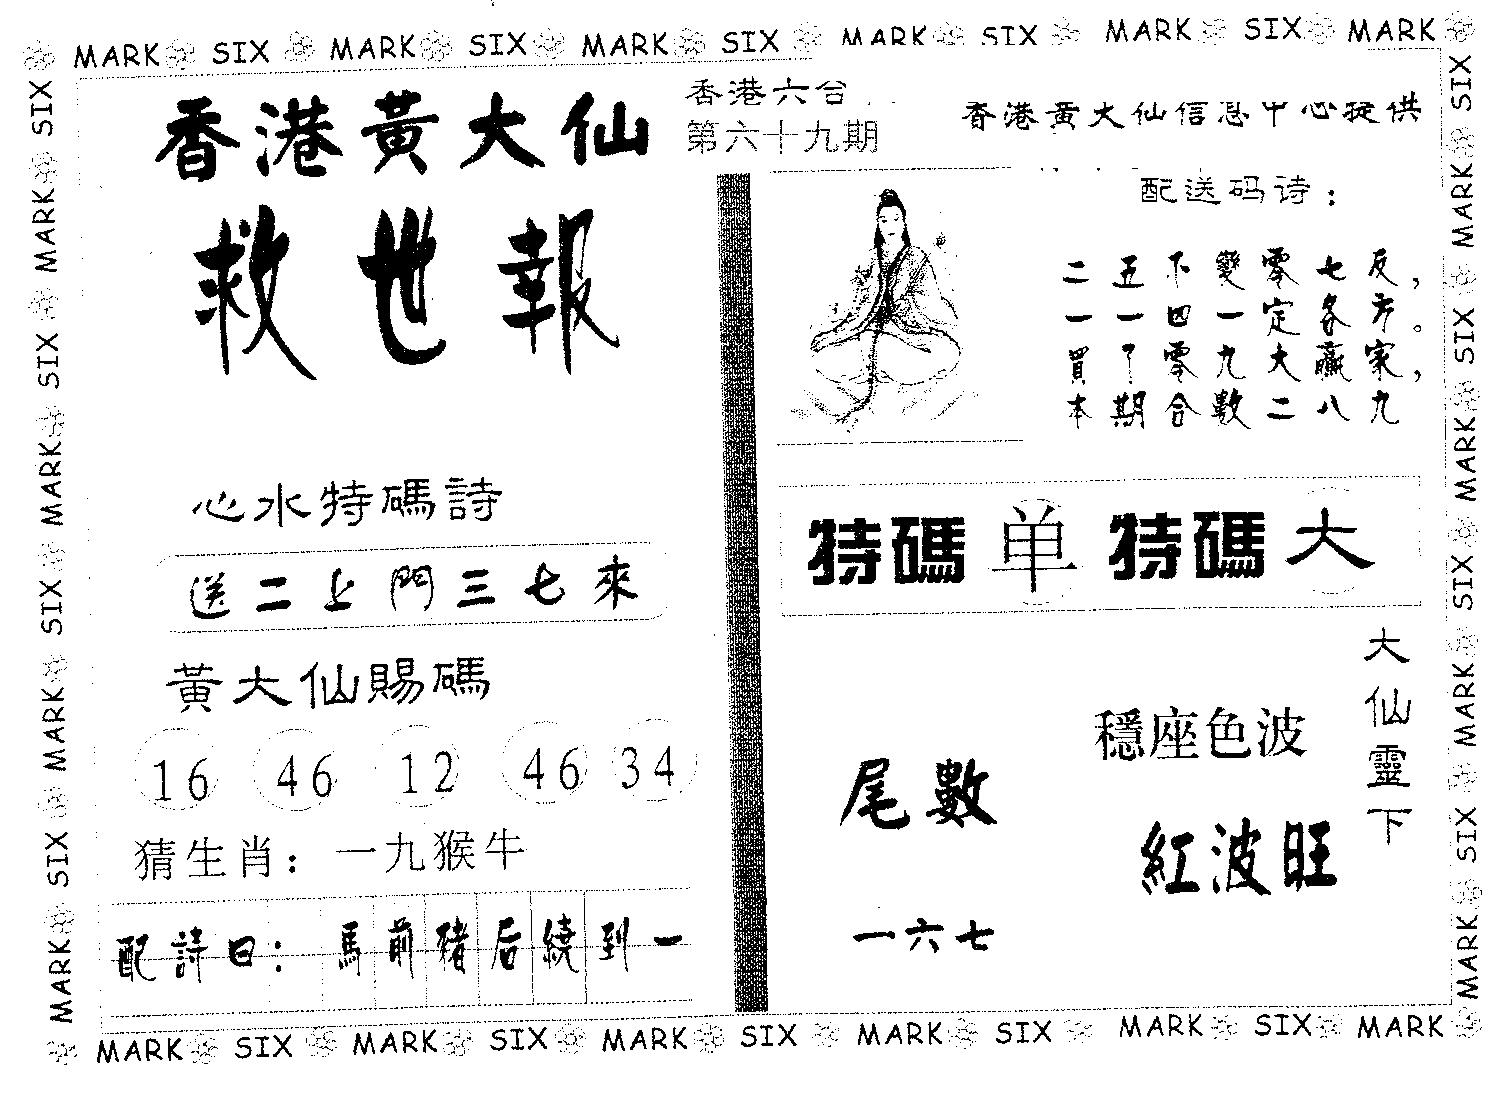 MARK SIX MARK SIX MARK SIX MARK SIX MARK SIX MARK
香港黃大仙
救世報
香港六合
第六十九期
香港黃大仙信息中心提供
配送码诗：
二五下變零七反，
一一四一定各方。
買了零九大贏家，
本期合數二八九
心水特碼詩
送二上門三七來
黃大仙賜碼
16 46 12 46 34
猜生肖：一九猴牛
配詩曰：馬前豬后繞到一
特碼单特碼大
大仙靈下
穩座色波
紅波旺
尾數
一六七
MARK SIX MARK SIX MARK SIX MARK SIX MARK SIX MARK
MARK SIX MARK SIX MARK SIX MARK SIX
SIX MARK SIX MARK SIX MARK SIX MARK